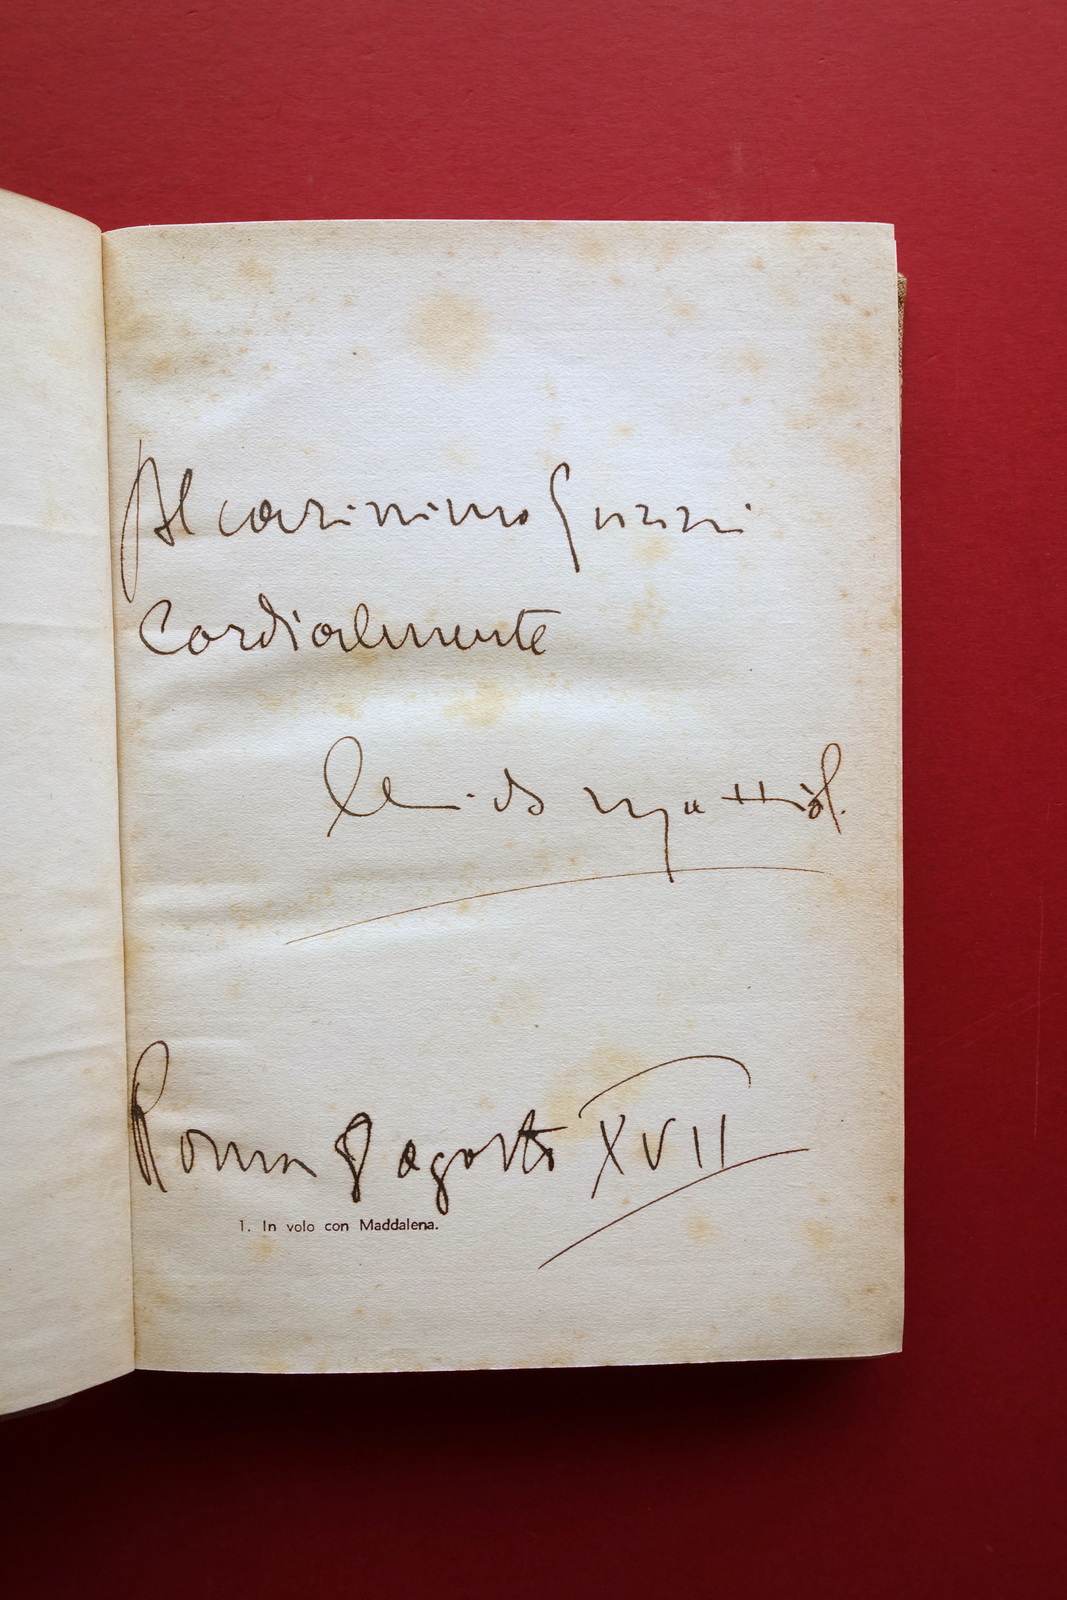 Al carissimo Guzzi
Cordialmente
Guido Mattioli
Roma 8 agosto XVII
1. In volo con Maddalena.